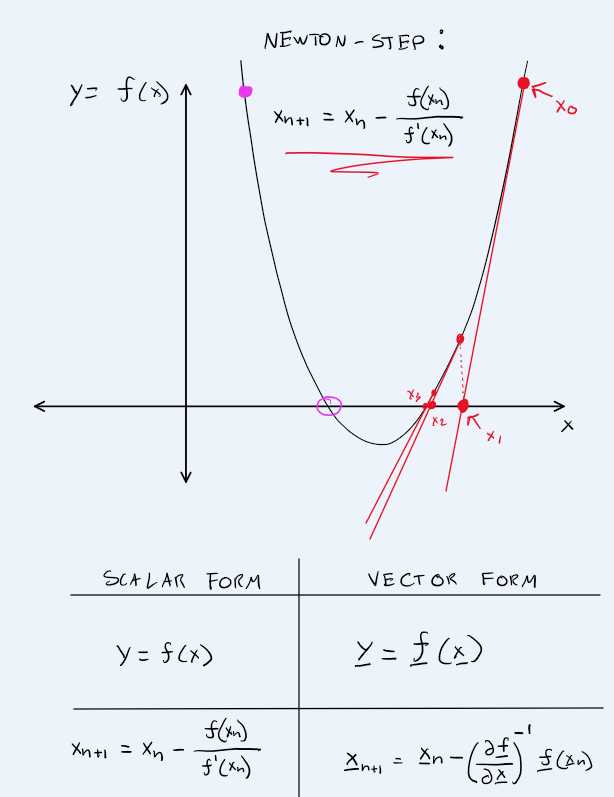 NEWTON-STEP:
y = f(x)
xₙ₊₁ = xₙ - f(xₙ)/f'(xₙ)
x₀
x₃
x₂
x₁
x
SCALAR FORM
VECTOR FORM
y = f(x)
y̲ = f̲(x̲)
xₙ₊₁ = xₙ - f(xₙ)/f'(xₙ)
x̲ₙ₊₁ = x̲ₙ - (∂f̲/∂x̲)⁻¹ f̲(xₙ)